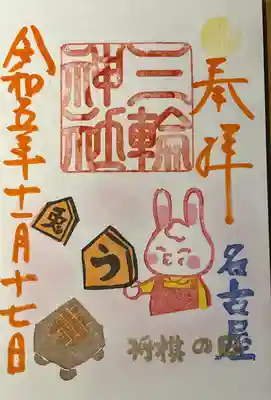 奉拝
三輪
神社
名古屋
う
将棋の日
令和五年十一月十七日